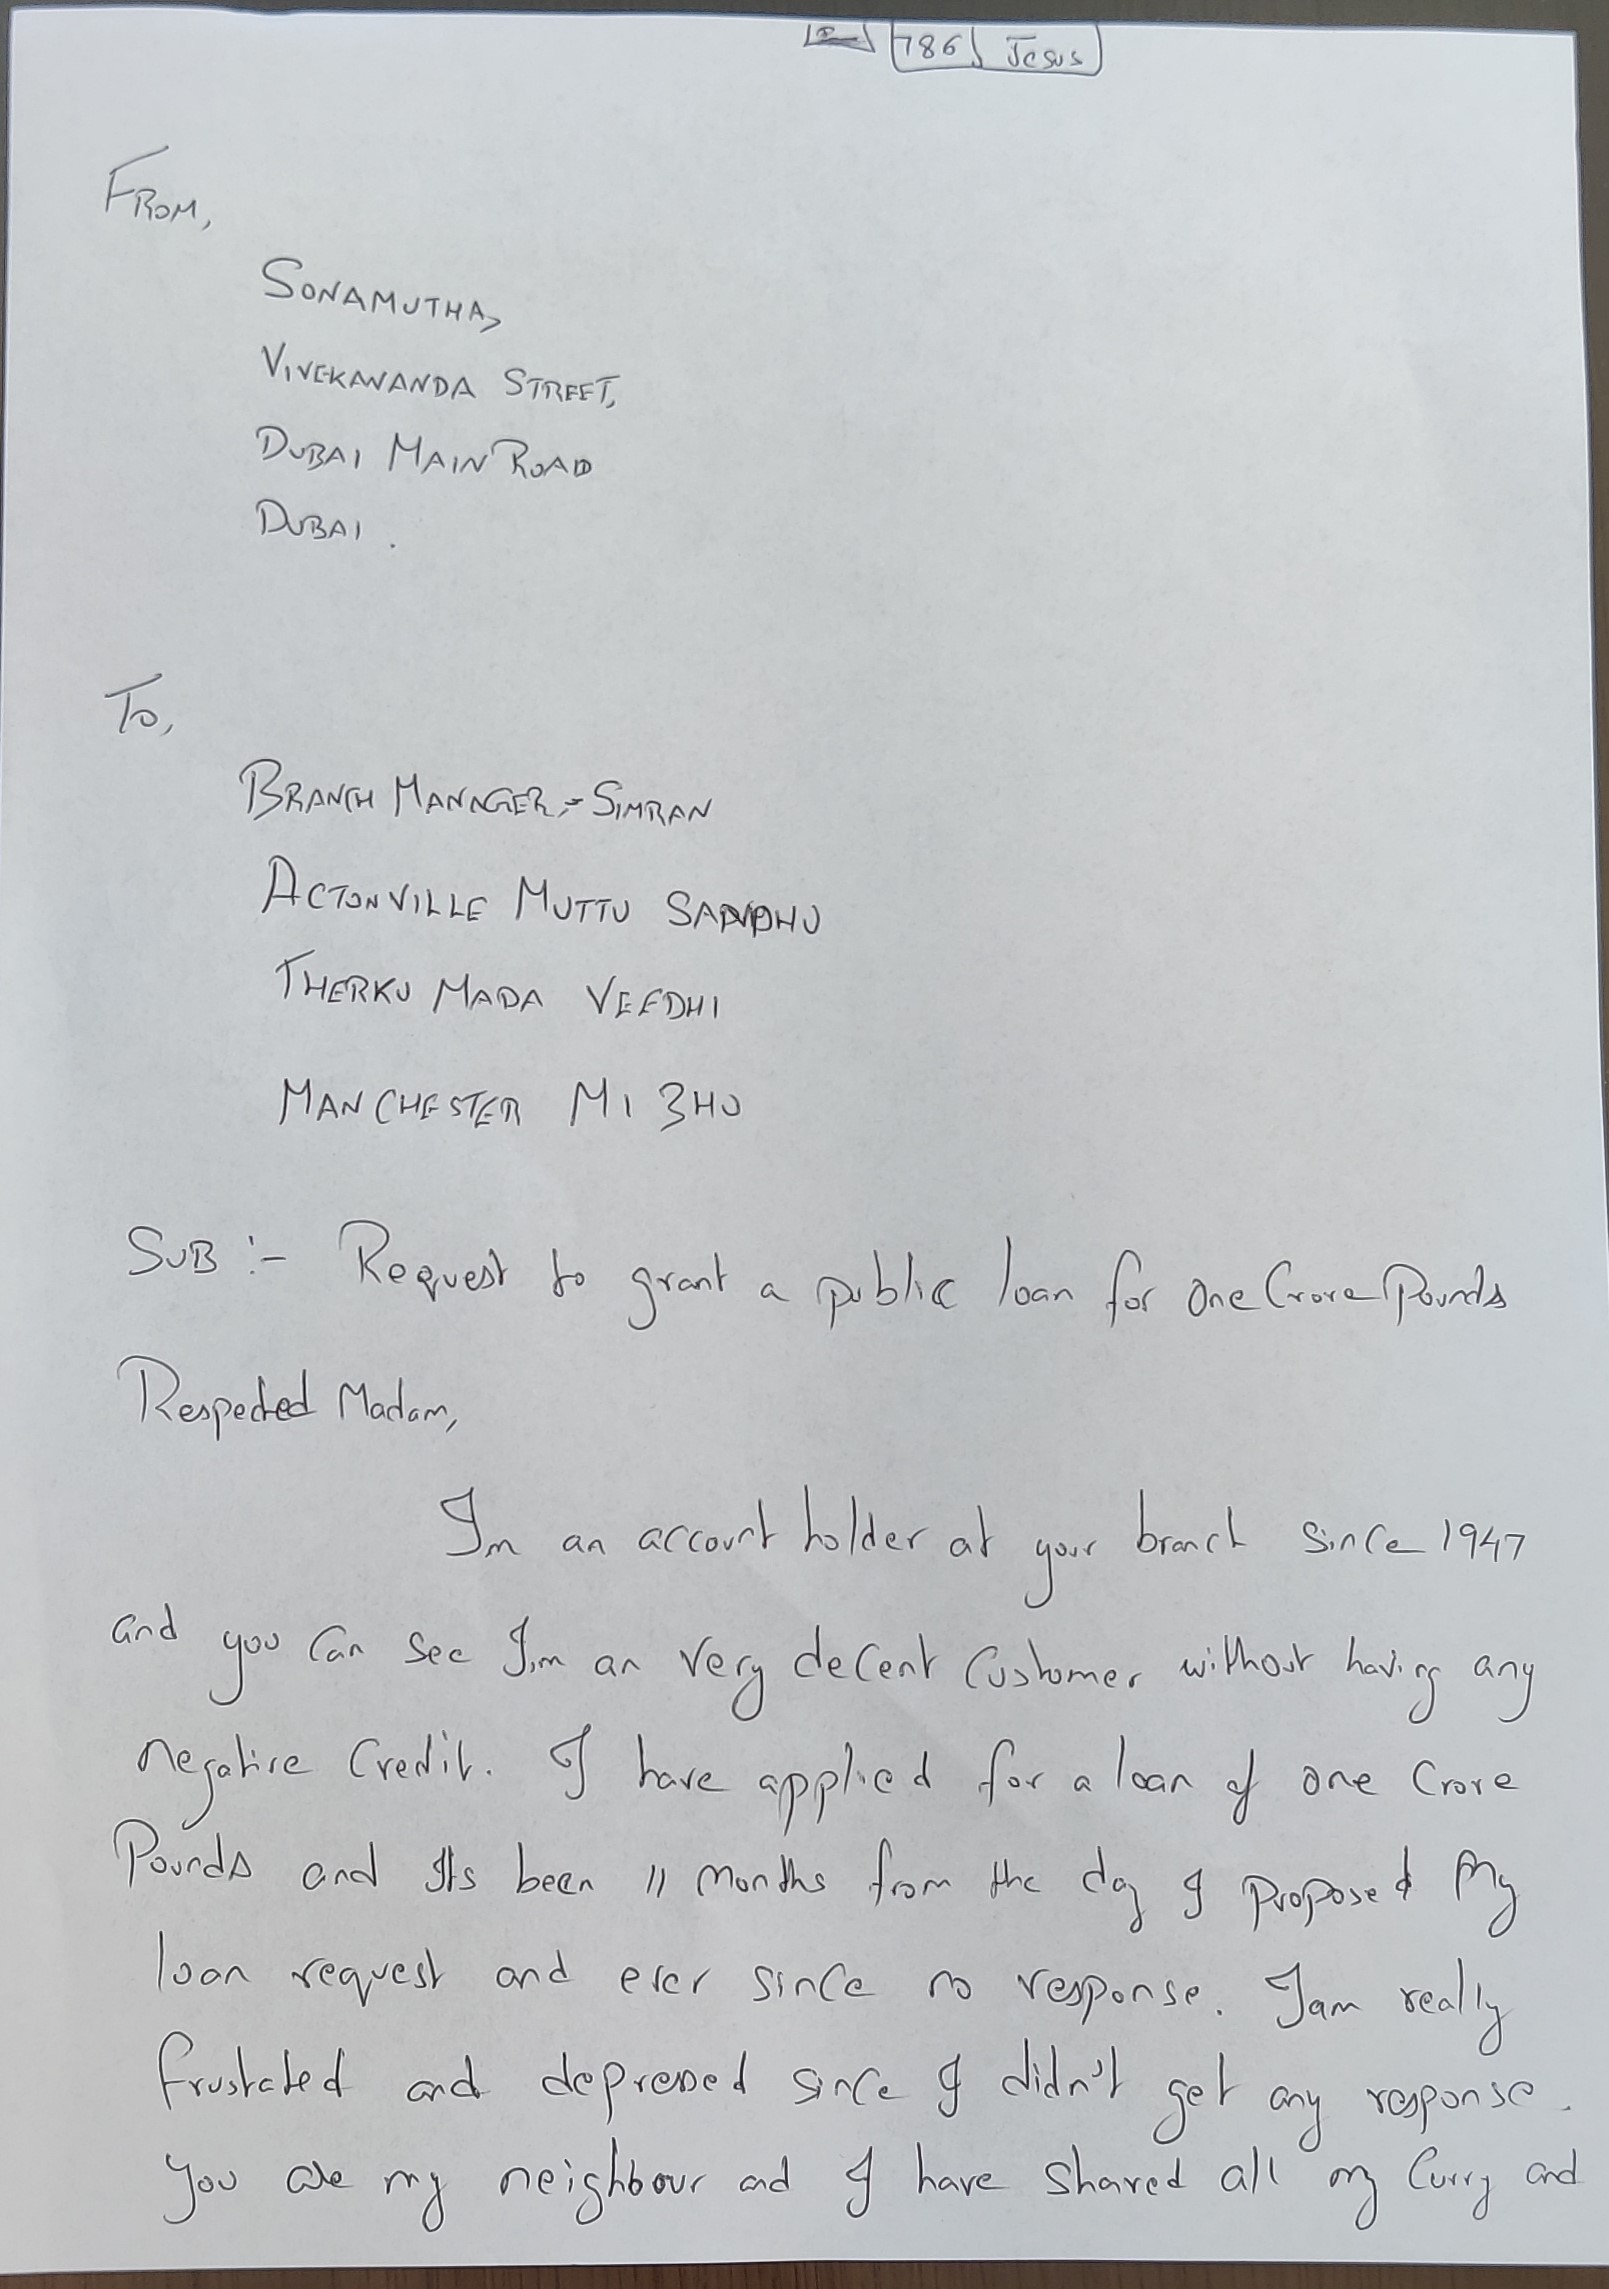 786 Jesus
FROM,
SONAMUTHA,
VIVEKANANDA STREET,
DUBAI MAIN ROAD
DUBAI.
To,
BRANCH MANAGER,- SIMRAN
ACTONVILLE MUTTU SANDHU
THERKU MADA VEEDHI
MANCHESTER M1 3HU
SUB :- Request to grant a public loan for one Crore Pounds
Respected Madam,
Im an account holder at your branch since 1947
and you Can see I'm an very decent Customer without having any
negative Credit. I have applied for a loan of one Crore
Pounds and Its been 11 months from the day I proposed My
loan request and ever since no response. I am really
frustated and depressed since I didn't get any response.
You are my neighbour and I have shared all my Curry and